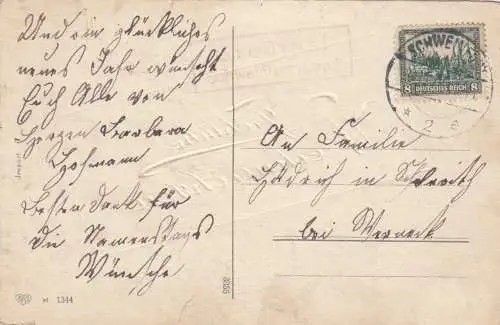 Und ein glückliches
neues Jahr wünscht
Euch Alle von
Herzen Barbara
Hofmann
Besten Dank für
die Namenstags
Wünsche
An Familie
Hädrich in
bei Werneck
SCHWEIN
DEUTSCHES REICH
8 8
2 8
Import
M 1344